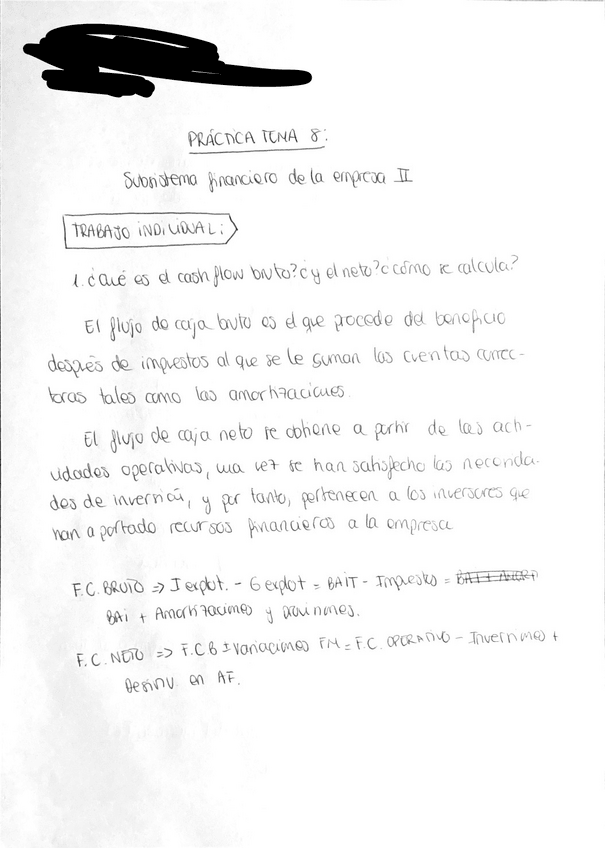 PRÁCTICA TEMA 8:
Subsistema financiero de la empresa II
TRABAJO INDIVIDUAL:
1. ¿Qué es el cash flow bruto? ¿y el neto? ¿cómo se calcula?
El flujo de caja buto es el que procede del beneficio
después de impuestos al que se le suman las cuentas correc-
toras tales como las amortizaciones.
El flujo de caja neto se obtiene a partir de las acti-
vidades operativas, una vez se han satisfecho las necesida-
des de inversión, y por tanto, pertenecen a los inversores que
han aportado recursos financieros a la empresa
F.C. BRUTO => I explot. - G explot = BAIT - Impuestos =
BAi + Amortizaciones y provisiones.
F.C. NETO => F.C.B ± Variaciones FM = F.C. OPERATIVO - Inversiones +
Desinv en AF.